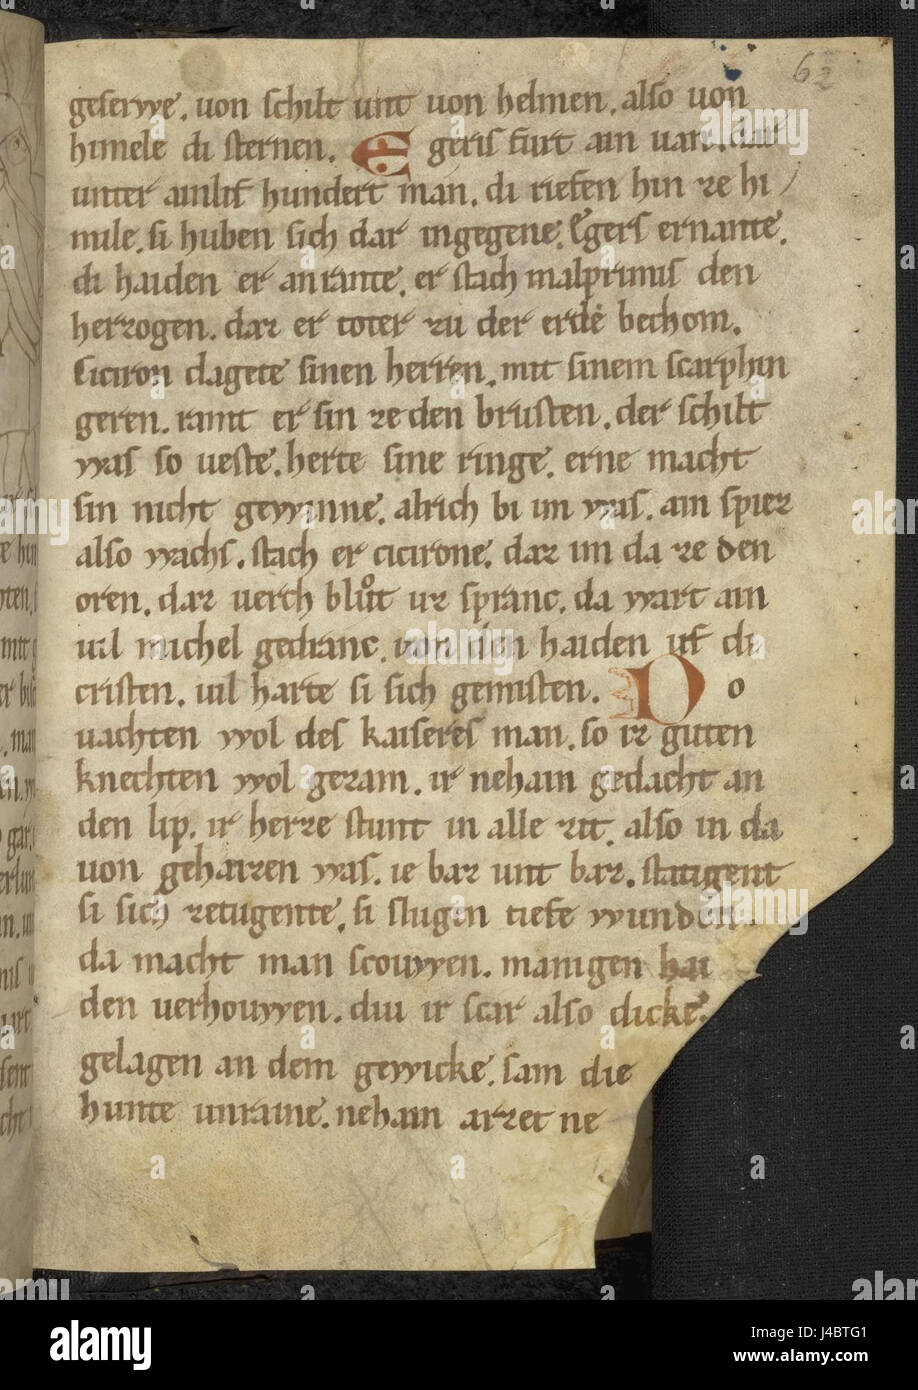 62
geserwe. uon schilt unt uon helmen. also uon
himele di sternen. Egeris furt ain uan. dar
unter ainlif hundert man. di riefen hin ze hi
mile. si huben sich dar ingegene. Egers ernante.
di haiden er anrante. er stach malprimis den
herzogen. daz er toter zu der erde bechom.
Ciciron clagete sinen herren. mit sinem scarphin
geren. ramt er sin ze den brusten. der schilt
was so ueste. herte sine ringe. erne macht
sin nicht gewinne. alrich bi im was. ain spiez
also wachs. stach er cicirone. daz im da ze den
oren. daz uerch blůt uz spranc. da wart ain
uil michel gedranc. uon den haiden uf di
cristen. uil harte si sich gemisten. Do
uachten wol des kaiseres man. so iz guten
knechten wol gezam. ir nehain gedacht an
den lip. ir herze stunt in alle zit. also in da
uon gehaizen was. ie baz unt baz. statigent
si sich ze tugente. si slugen tiefe wunden
da macht man scouwen. manigen hai
den uerhouwen. diu ir scar also dicke.
gelagen an dem gewicke. sam die
hunte unraine. nehain arzet ne
alamy
Image ID: J4BTG1
www.alamy.com